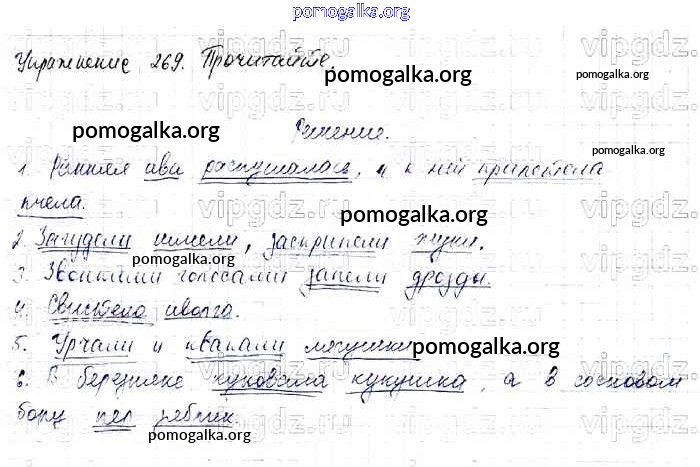 pomogalka.org
Упражнение 269. Прочитайте.
pomogalka.org
pomogalka.org
Решение.
pomogalka.org
1. Ранняя ива распушилась, и к ней прилетела
пчела.
pomogalka.org
2. Загудели шмели, заскрипели жуки.
pomogalka.org
3. Звонкими голосами запели дрозды.
4. Свистела иволга.
5. Урчали и квакали лягушки.
pomogalka.org
6. В березняке куковала кукушка, а в сосновом
бору пел зяблик.
pomogalka.org
vipgdz.ru